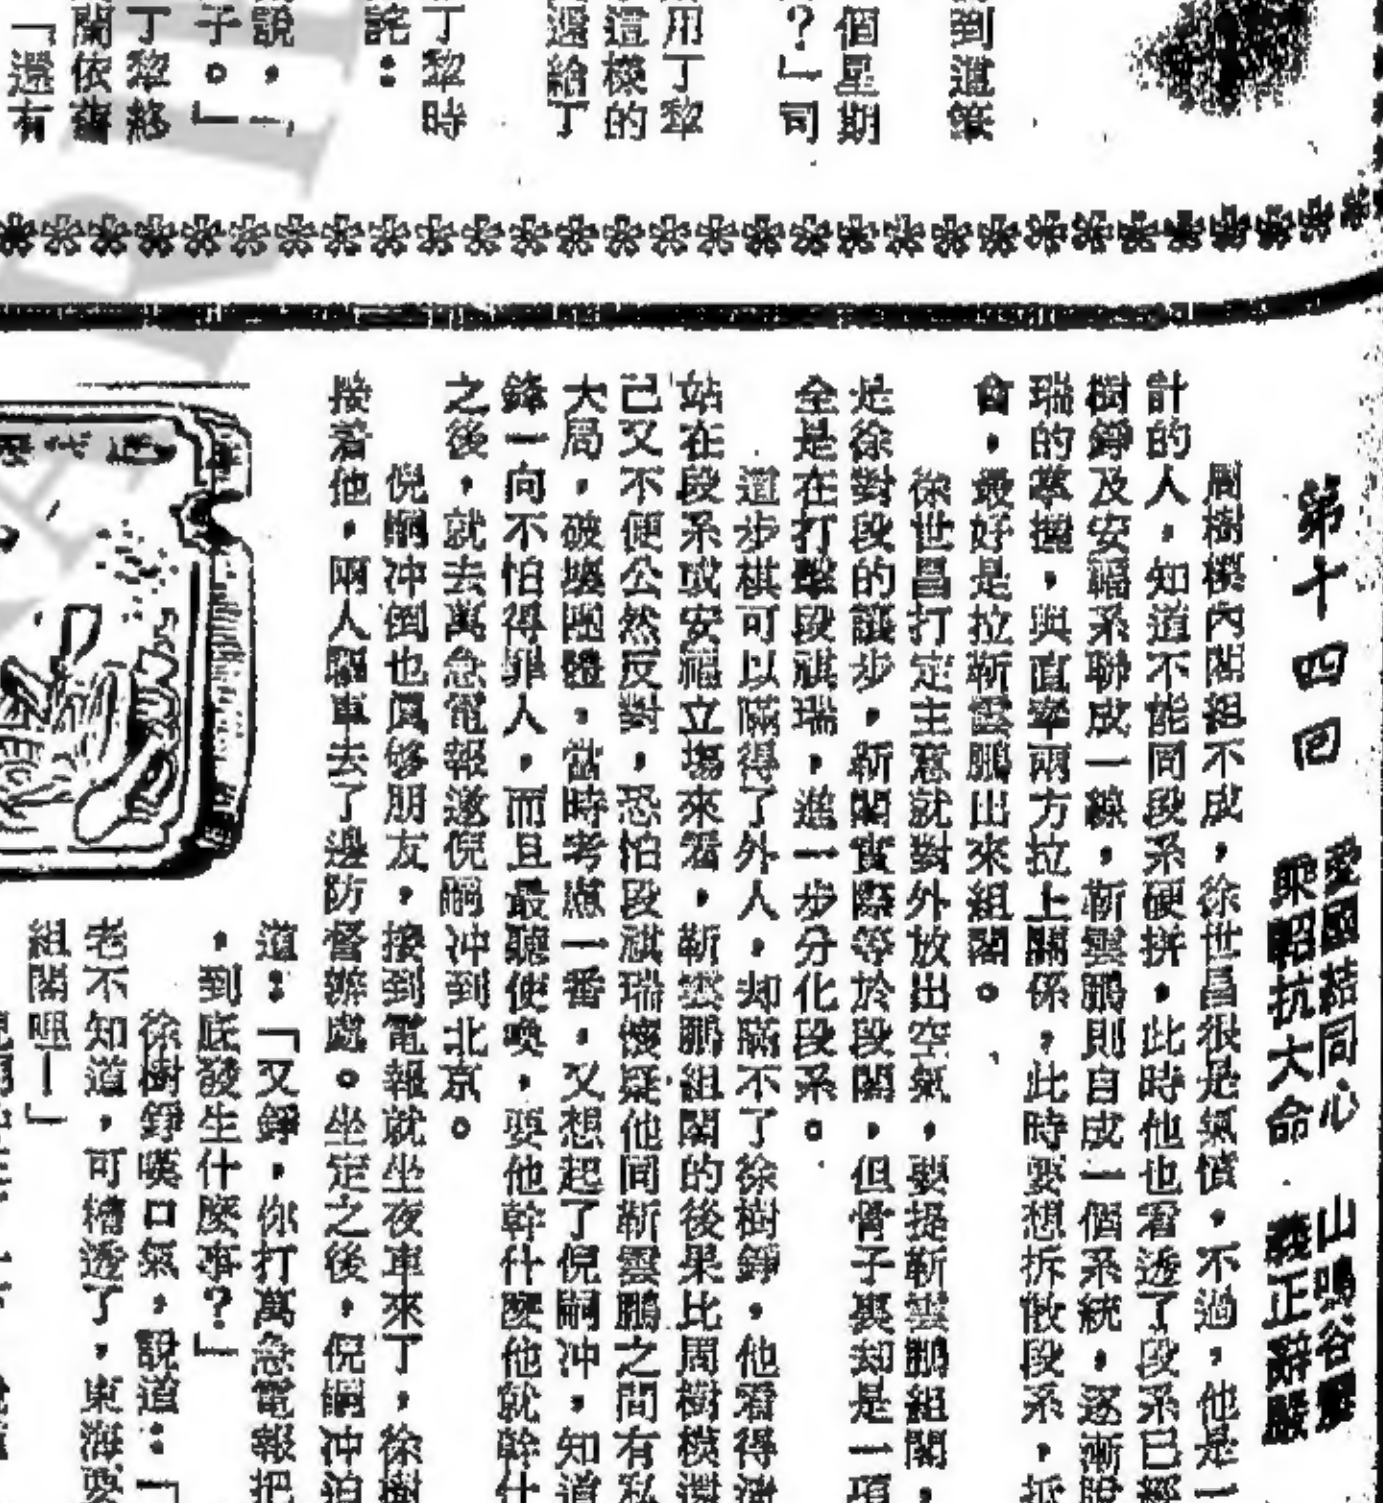 到這筆
個星期
？」司
用丁犂
這樣的
還給丁
丁犂時
詫：
說，「
子。」
丁犂終
蘭依舊
「還有
第十四回
愛國結同心　山鳴谷應
秉昭抗大命　義正辭嚴
周樹模內閣組不成，徐世昌很是氣憤，不過，他是一
計的人，知道不能同段系硬拼，此時他也看透了段系已經
樹錚及安福系聯成一線，靳雲鵬則自成一個系統，逐漸脫
瑞的掌握，與直奉兩方拉上關係，此時要想拆散段系，
會，最好是拉靳雲鵬出來組閣。
徐世昌打定主意就對外放出空氣，要提靳雲鵬組閣，
是徐對段的讓步，靳閣實際等於段閣，但骨子裏却是一項
全是在打擊段祺瑞，進一步分化段系。
這步棋可以瞞得了外人，却瞞不了徐樹錚，他看得清
站在段系或安福立場來看，靳雲鵬組閣的後果比周樹模還
己又不便公然反對，恐怕段祺瑞懷疑他同靳雲鵬之間有私
大局，破壞團體，當時考慮一番，又想起了倪嗣冲，知道
鋒一向不怕得罪人，而且最聽使喚，要他幹什麼他就幹什
之後，就去萬急電報邀倪嗣冲到北京。
倪嗣冲倒也眞够朋友，接到電報就坐夜車來了，徐樹
接着他，兩人驅車去了邊防督辦處。坐定之後，倪嗣冲迫
道：「又錚，你打萬急電報把
，到底發生什麼事？」
徐樹錚嘆口氣，說道：「
老不知道，可糟透了，東海要
組閣哩！」